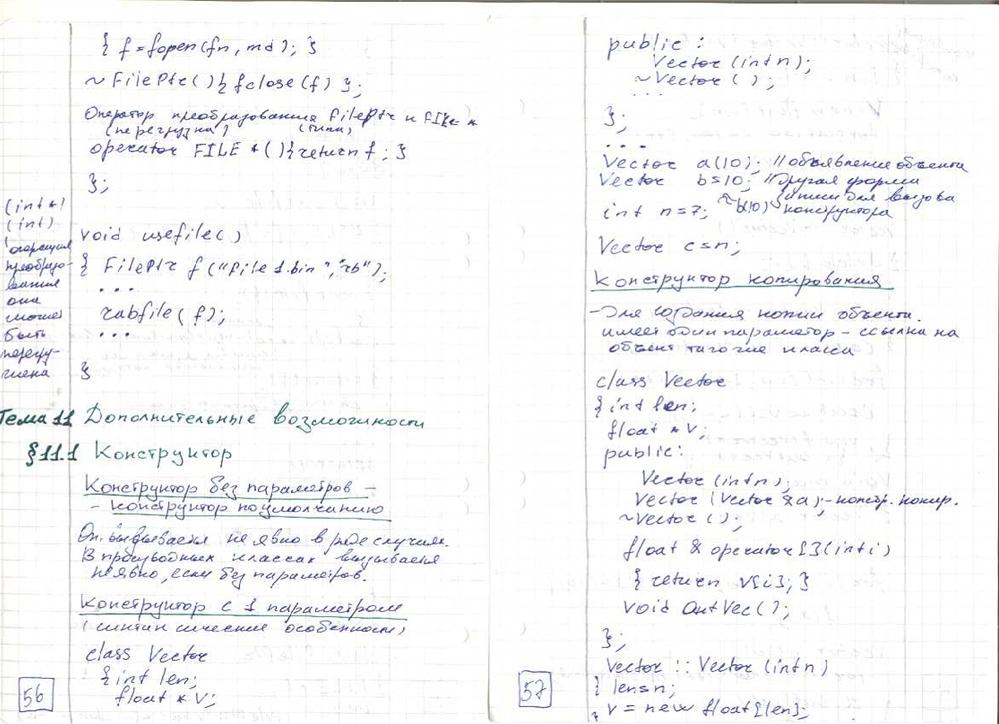 { f=fopen(fn, md); }
~FilePtr(){ fclose(f) };
Оператор преобразования FilePtr к FILE *
(перегрузка) (типа)
operator FILE *(){return f; }
};
(int *)
(int)
операция
преобразо-
вания
она
может
быть
перегру-
жена
void usefile()
{ FilePtr f("file1.bin","rb");
...
rabfile(f);
...
}
Тема 11 Дополнительные возможности
§11.1 Конструктор
Конструктор без параметров -
- конструктор по умолчанию
Он вызывается неявно в ряде случаев.
В производных классах вызывается
неявно, если без параметров.
Конструктор с 1 параметром
(синтаксические особенности)
class Vector
{ int len;
float * V;
56
public :
Vector (int n);
~Vector ( );
...
};
...
Vector a(10); //объявление объекта
Vector b=10; //другая форма
записи для вызова
int n=7; ~b(10) конструктора
Vector c=n;
Конструктор копирования
-Для создания копии объекта.
имеет один параметр - ссылка на
объект того же класса
class Vector
{ int len;
float * V;
public:
Vector (int n);
Vector (Vector &a);-констр. копир.
~Vector ( );
float & operator[](int i)
{ return V[i]; }
void OutVec( );
};
Vector :: Vector (int n)
{ len=n;
V = new float[len];
57